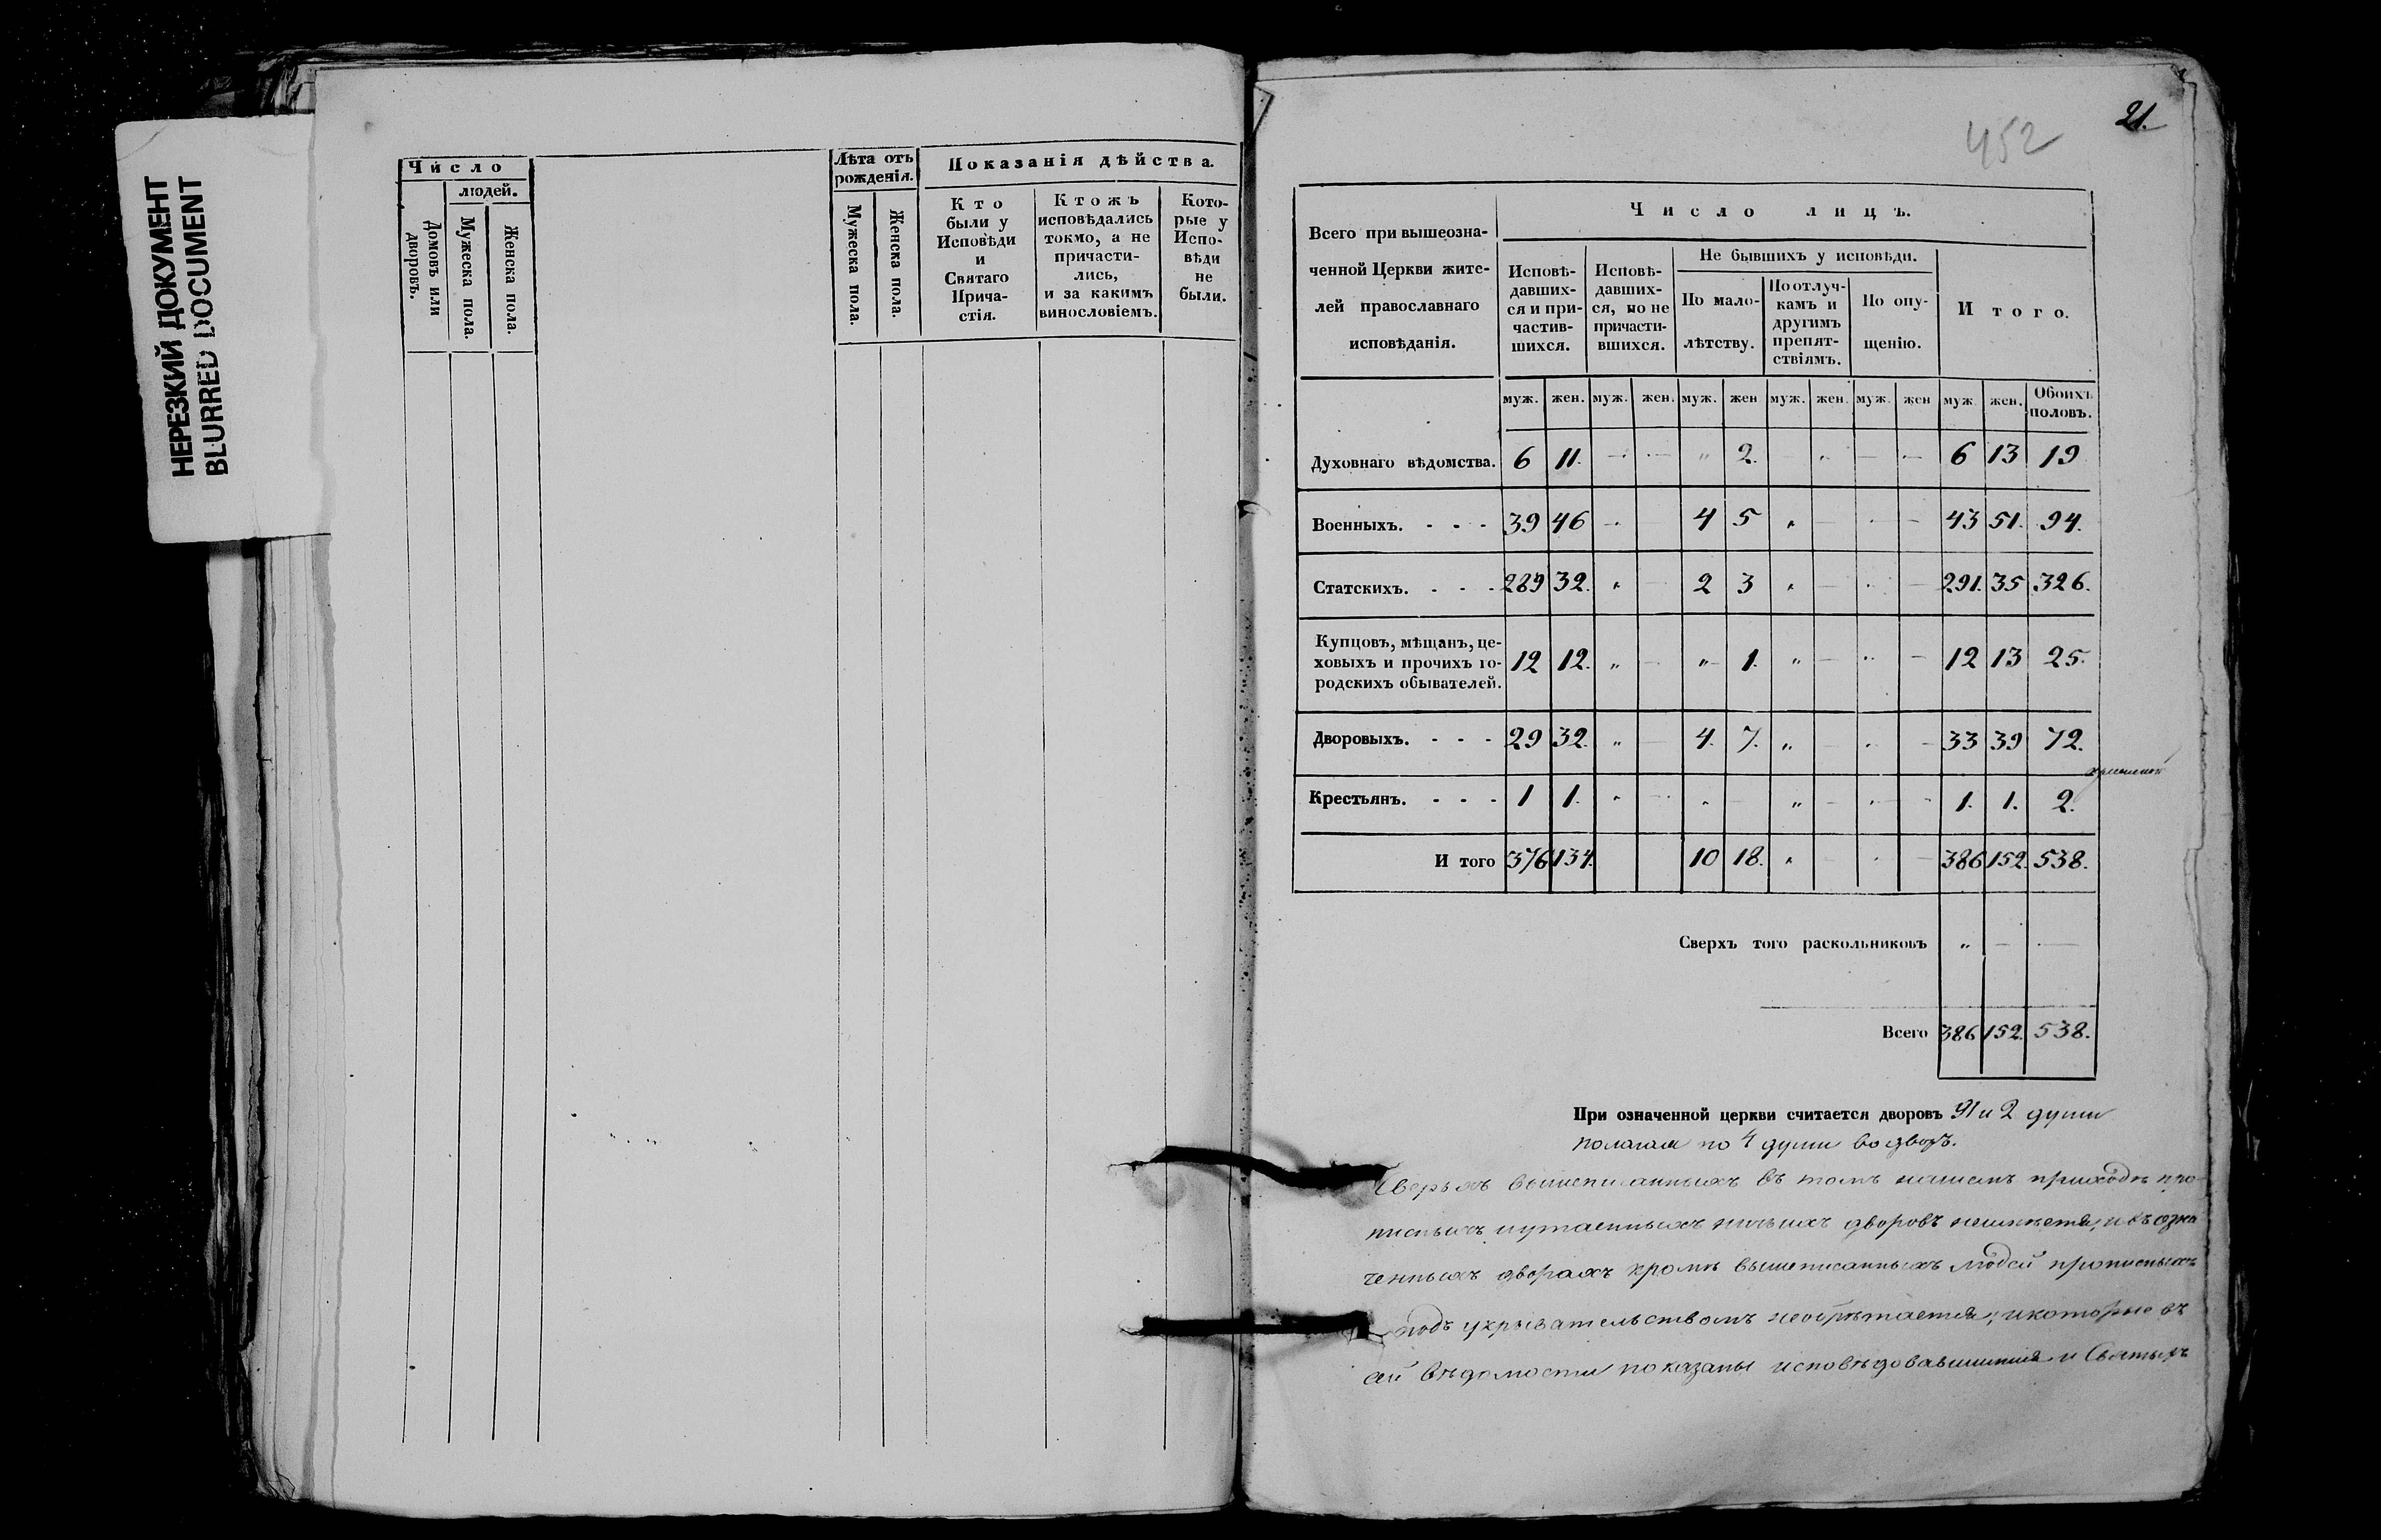 НЕРЕЗКИЙ ДОКУМЕНТ
BLURRED DOCUMENT
Число
людей.
Домовъ или дворовъ.
Мужеска пола.
Женска пола.
Лѣта отъ рожденія.
Мужеска пола.
Женска пола.
Показанія дѣйства.
Кто
были у
Исповѣди
и
Святаго
Прича-
стія.
Ктожъ
исповѣдались
токмо, а не
причасти-
лись,
и за какимъ
винословіемъ.
Кото-
рые у
Испо-
вѣди
не
были.
452
21.
Всего при вышеозна-
ченной Церкви жите-
лей православнаго
исповѣданія.
Число лицъ.
Исповѣ-
давших-
ся и при-
частив-
шихся.
Исповѣ-
давших-
ся, но не
причасти-
вшихся.
Не бывшихъ у исповѣди.
По мало-
лѣтству.
По отлуч-
камъ и
другимъ
препят-
ствіямъ.
По опу-
щенію.
И того.
муж. жен. муж. жен. муж. жен муж. жен. муж. жен муж. жен. Обоихъ половъ.
Духовнаго вѣдомства. 6 11. — — „ 2. — — — — 6 13 19
Военныхъ. - - - 39 46 — 4 5 „ — — — 43 51. 94.
Статскихъ. - - - 289 32. „ — 2 3 „ — — — 291. 35 326.
Купцовъ, мѣщанъ, це-
ховыхъ и прочихъ го-
родскихъ обывателей.
12 12. „ — „ 1. „ — „ — 12 13 25.
Дворовыхъ. - - - 29 32. „ — 4. 7. „ — „ — 33 39 72.
Крестьянъ. - - - 1 1. „ — „ — „ — „ — 1. 1. 2.
И того 376 134. 10 18. „ — „ — 386 152. 538.
Сверхъ того раскольниковъ „ — —
Всего 386 152. 538.
При означенной церкви считается дворовъ 91 и 2 души
полагая по 4 души во дворъ.
Сверхъ вышеписанныхъ въ томъ нашемъ приходѣ про-
писныхъ и утаенныхъ ничьихъ дворовъ неимѣется, и въ озна
ченныхъ дворахъ кромѣ вышеписанныхъ людей прописныхъ
подъ укрывательствомъ необрѣтается, и которые въ
сей вѣдомости показаны исповѣдовавшимися и Святыхъ